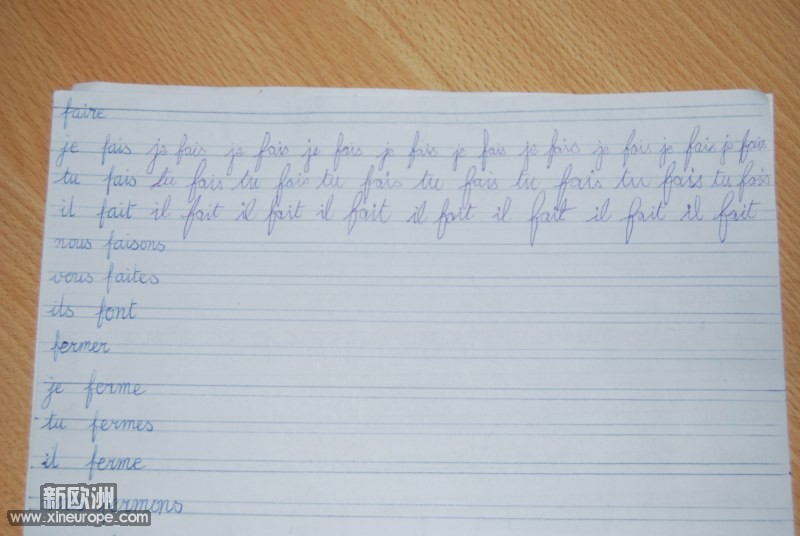 faire
je fais je fais je fais je fais je fais je fais je fais je fais je fais je fais
tu fais tu fais tu fais tu fais tu fais tu fais tu fais tu fais
il fait il fait il fait il fait il fait il fait il fait il fait
nous faisons
vous faites
ils font
fermer
je ferme
tu fermes
il ferme
新欧洲
www.xineurope.com